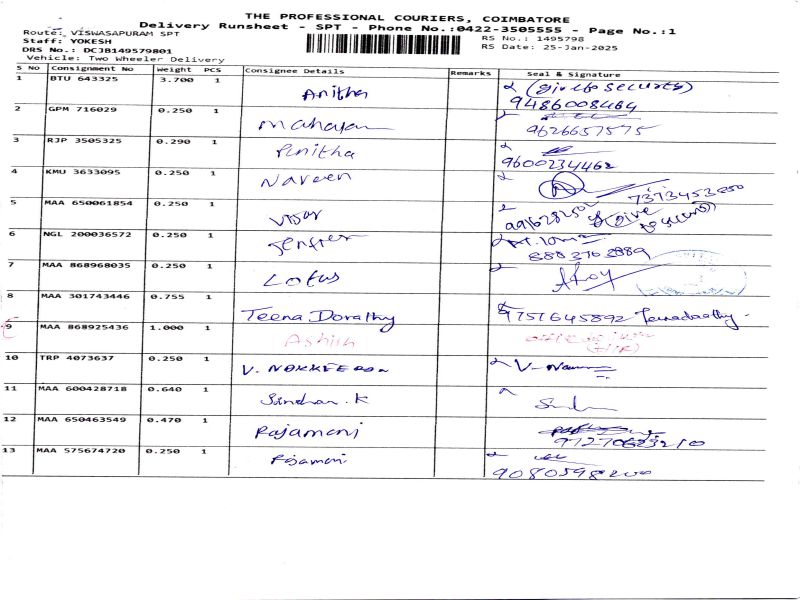 THE PROFESSIONAL COURIERS, COIMBATORE
Delivery Runsheet - SPT - Phone No.:0422-3505555 - Page No.:1
Route: VISWASAPURAM SPT
RS No.: 1495798
Staff: YOKESH
RS Date: 25-Jan-2025
DRS No.: DCJB149579801
Vehicle: Two Wheeler Delivery
S No Consignment No Weight PCS Consignee Details Remarks Seal & Signature
1 BTU 643325 3.700 1 Anitha (give to security)
9486008464
2 GPM 716029 0.250 1 Mahajan
9626657575
3 RJP 3505325 0.290 1 Punitha
9600234462
4 KMU 3633095 0.250 1 Naveen
7373453250
5 MAA 650061854 0.250 1 Vijay (give to security)
6 NGL 200036572 0.250 1 Jenifer
8883763889
7 MAA 868968035 0.250 1 Lotus
8 MAA 301743446 0.755 1 Teena Dorathy 9751645892 Teenadorathy
9 MAA 868925436 1.000 1 Ashish
10 TRP 4073637 0.250 1 V. NOKKEERAN V. Nam
11 MAA 600428718 0.640 1 Sindhan.K
12 MAA 650463549 0.470 1 Rajamani
13 MAA 575674720 0.250 1 Rajamani
9080598200